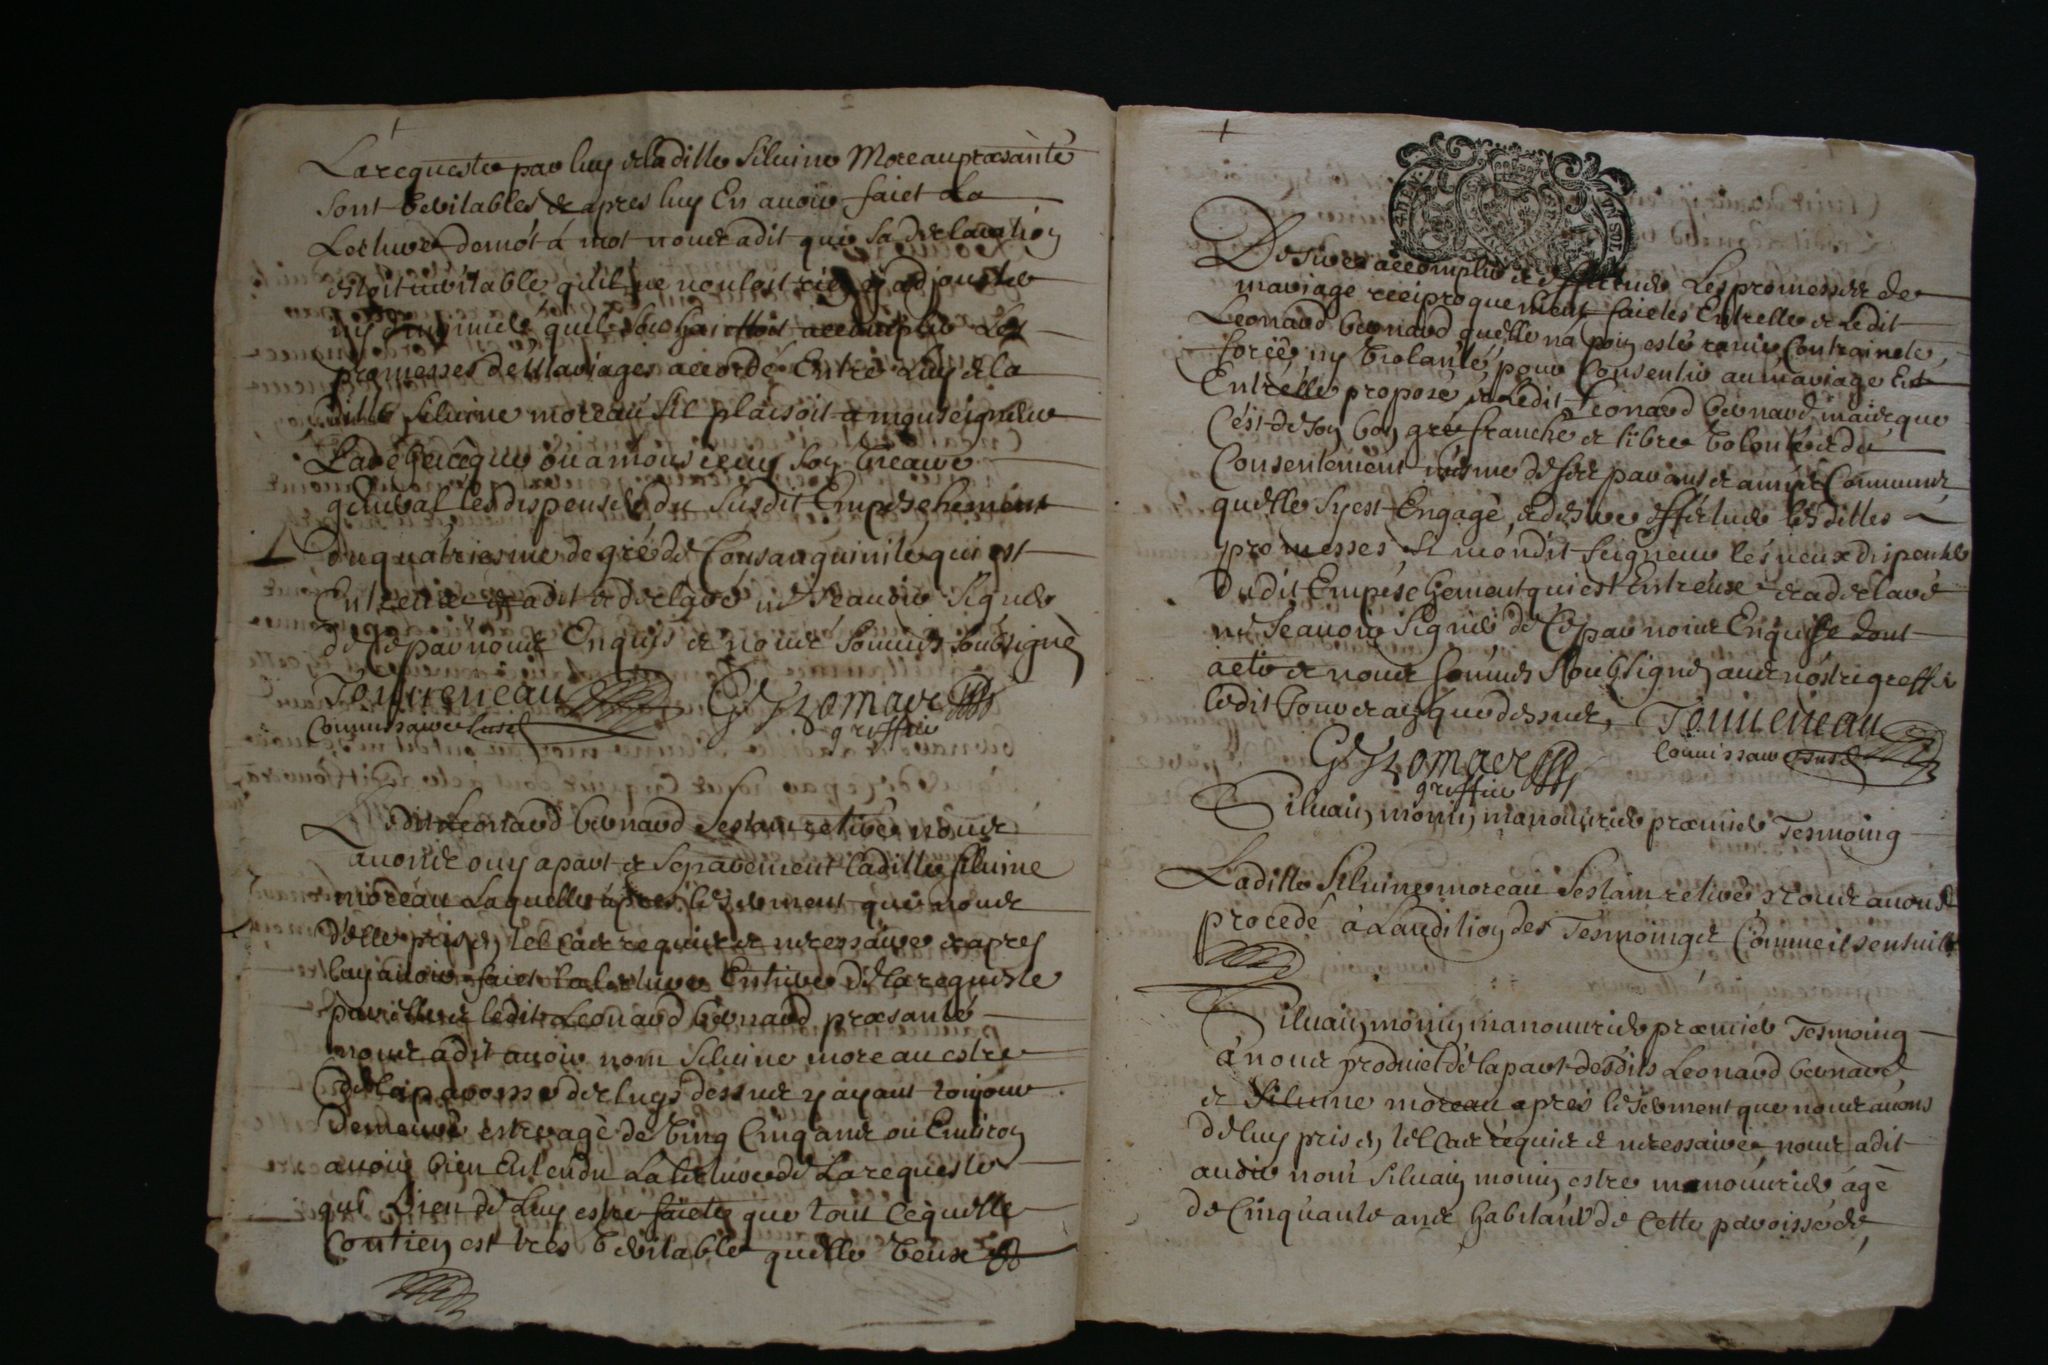 La requeste par luy & laditte Siluine Moreau præsanté
sont veritables & apres luy En auoir faict La
Lecture de mot á mot nous a dit que sa declaration
estoit veritable qu'il ne vouloit rien y adjouster
ny diminuer, qu'il souhaittoit accomplir Les
promesses de Mariages accordé Entre Luy & la
ditte Siluine moreau Sil plaisoit a monseigneur
L'archeuêque ou a monsieur son vicaire
general les dispenser du Susdit Empeschement
du quatriesme degré de Consanguinité qui est
Entreux & a dit & declaré ne sçauoir Signer
de ce par nous Enquis & nous sommes soubsigné
Tourreneau G
Commissaire susd greffier
Ledit Leonard bernard S'estant retiré nous
auons ouy apart & separement laditte Siluine
moreau Laquelle apres le serment que nous
d'elle pris en tel cas requis & necessaire & apres
luy auoir faict la lecture Entiere de la requeste
par elle & ledit Leonard bernard præsanté
nous a dit auoir nom Siluine moreau estre
de la paroisse de lugs dessus y ayant toujour
demeuré estre agé de vingt Cinq ans ou Enuiron
auoir bien Entendu La lecture de La requeste
qui vien de Luy estre faicte que tout ce qu'elle
Contien est tres veritable qu'elle veux &
Desire accomplir & effectuer Les promesses de
mariage reciproquement faictes Entr'elle & Ledit
Leonard bernard, qu'elle na poin esté rauie, Contrainte,
forcée, ny violanté, pour Consentir au mariage Est
Entr'elle proposé & Ledit Leonard bernard, mais que
C'est de son bon gré franche & libre volonté & du
Consentement mesme de ses parans & amis Communs
qu'elle s'y est Engagé, & desire effectuer lesdittes
promesses si mondit seigneur les veux dispenser
Dudit Empeschement qui est Entreux & a declaré
ne sçauoir Signer de ce par nous Enquise dont
acte & nous sommes soubsignez auec nostre greffier
ledit jour & an que dessus, Tourreneau
G Commissaire susd
greffier
Siluain monin manouurier præmier Tesmoing
Laditte Siluine moreau s'estant retirée Nous auons
procedé à L'audition des Tesmoings Comme il sensuit
Siluain monin manouurier præmier Tesmoing
à nous produict de la part desdits Leonard bernard
& Siluine moreau apres le serment que nous auons
de luy pris en tel cas requis & necessaire, nous a dit
auoir nom Siluain monin estre manouurier agé
de Cinquante ans habitant de Cette paroisse de